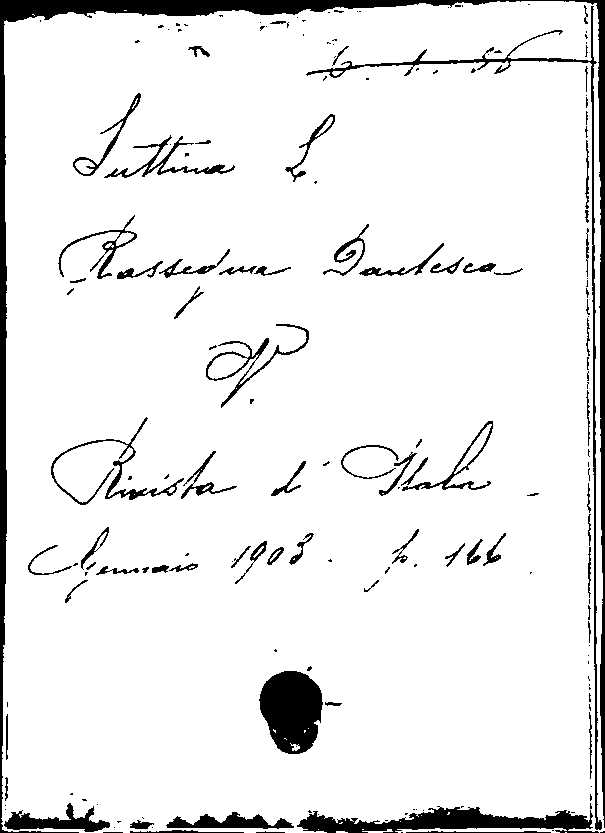 6. 1. 56
Suttina L.
Rassegna Dantesca
V.
Rivista d'Italia -
Gennaio 1903. p. 166.